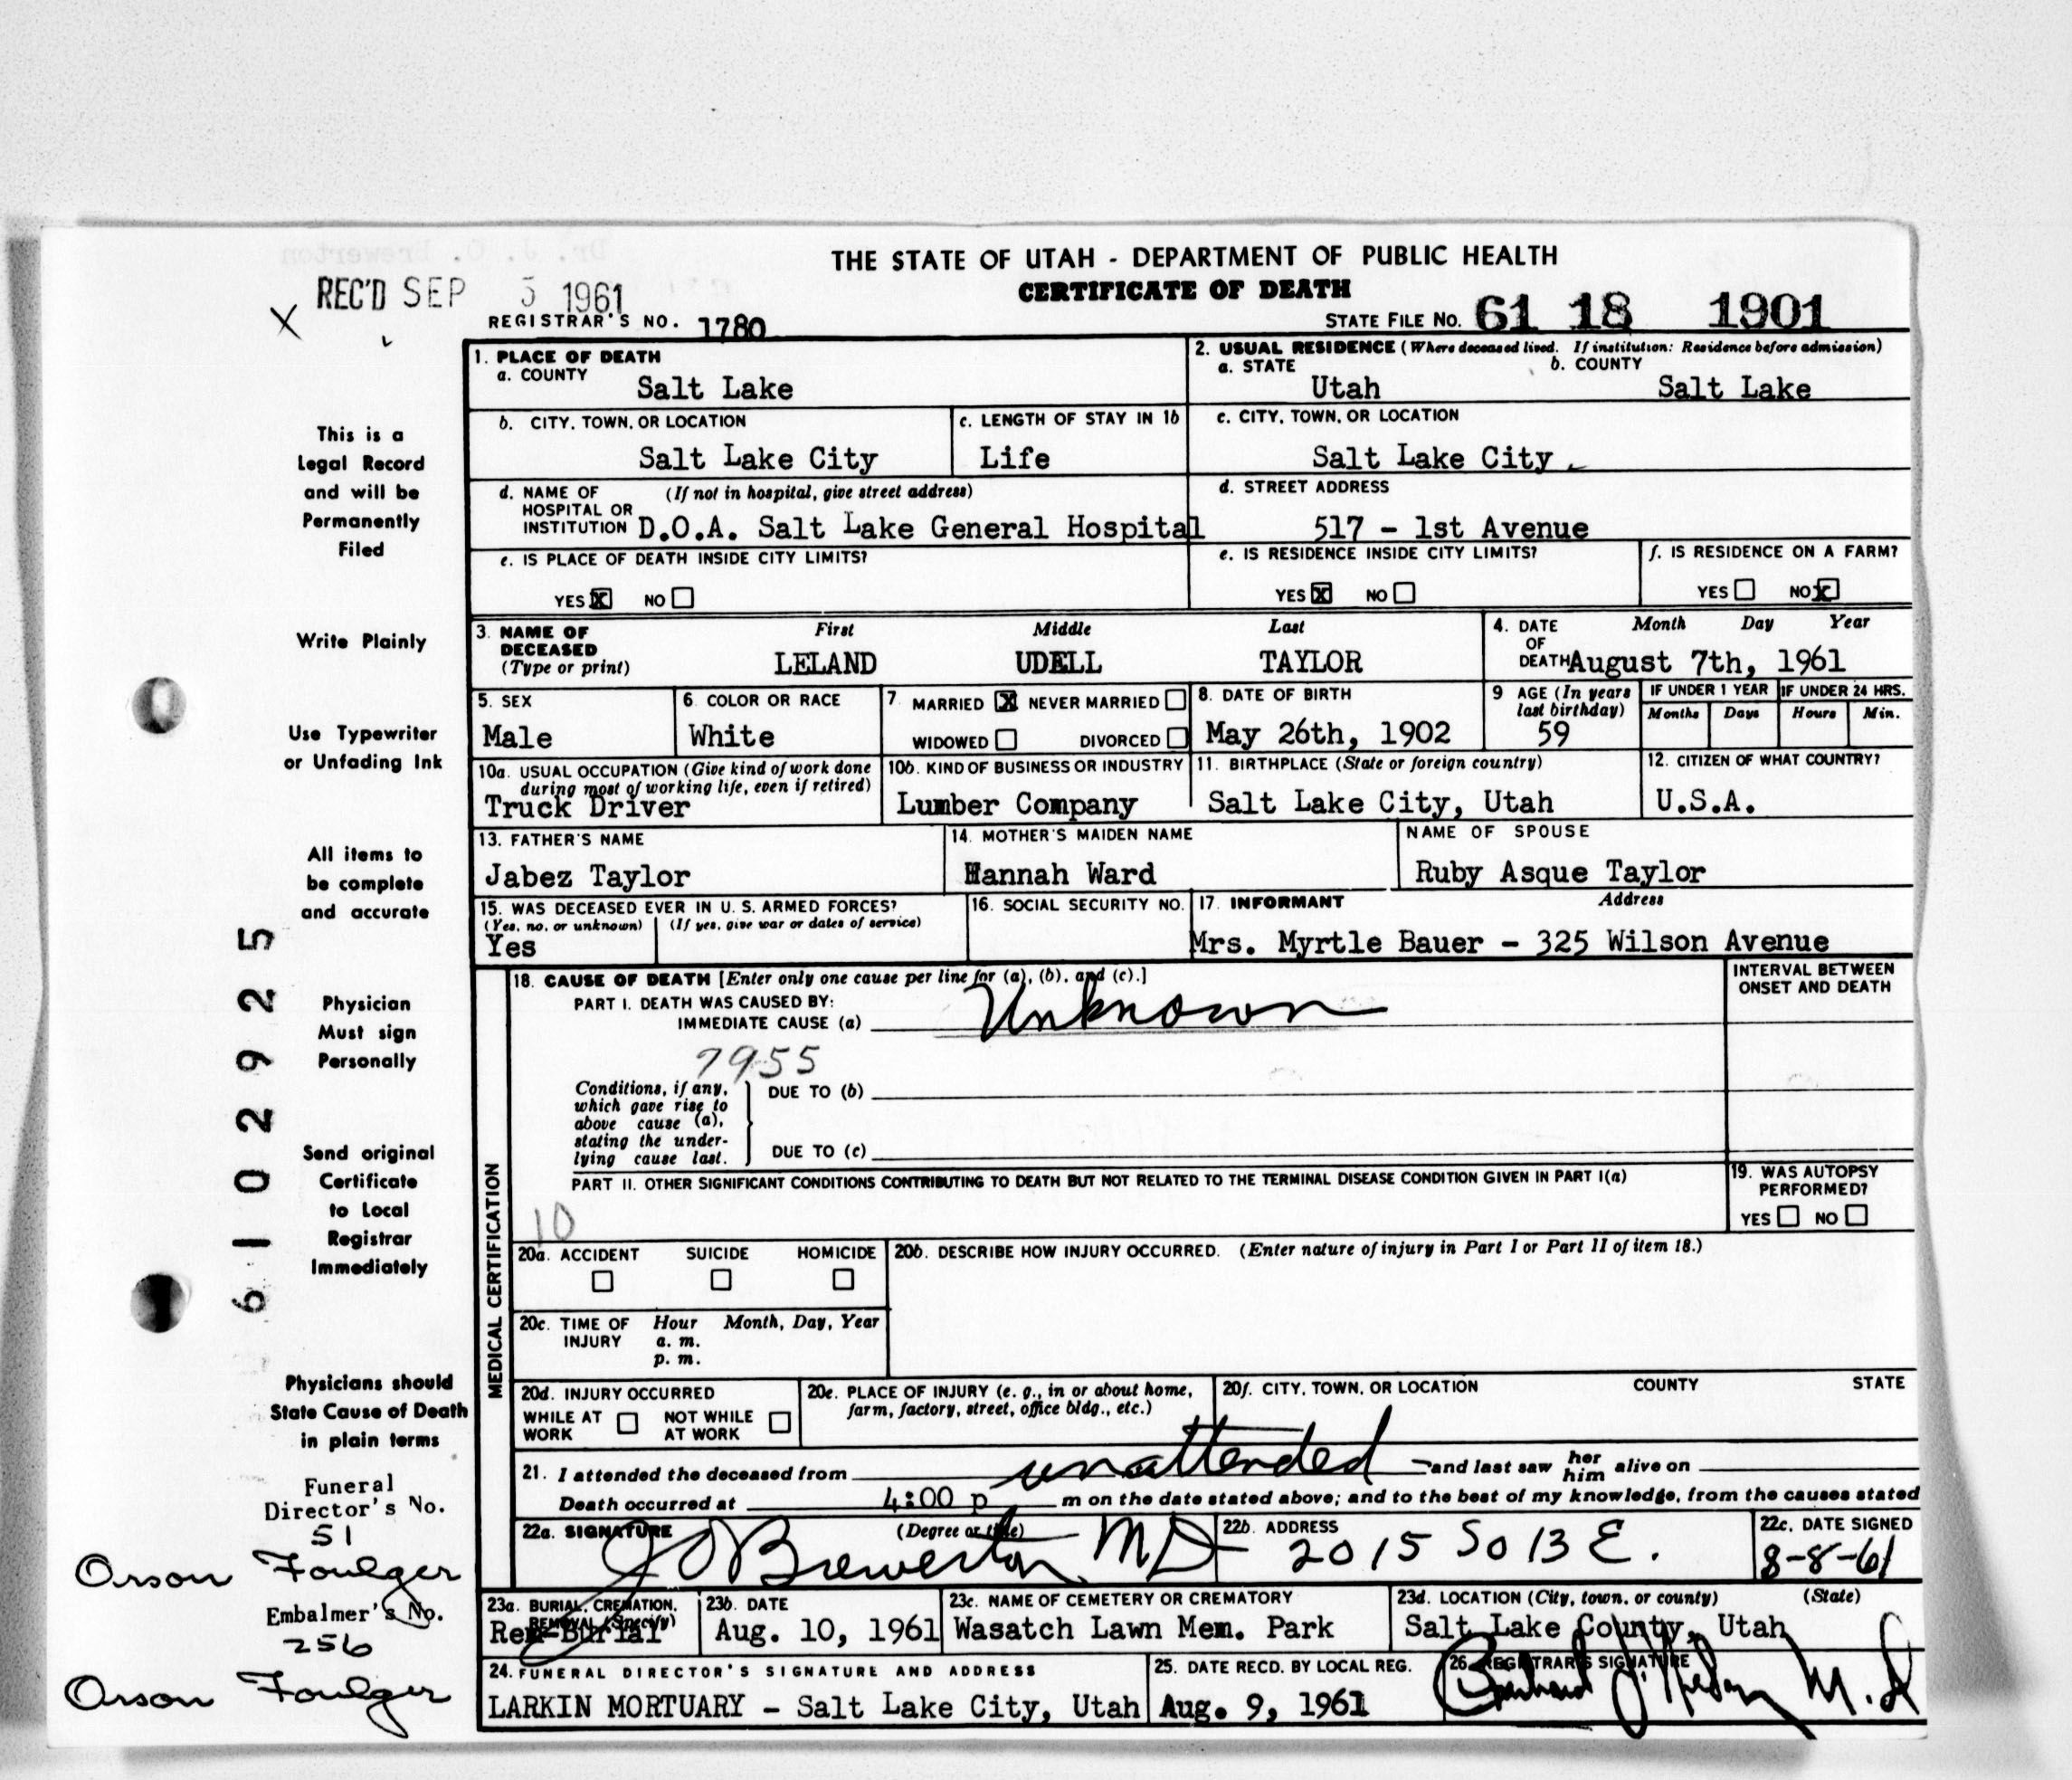 THE STATE OF UTAH - DEPARTMENT OF PUBLIC HEALTH
CERTIFICATE OF DEATH
REC'D SEP 5 1961
REGISTRAR'S NO. 1780
STATE FILE NO. 61 18 1901
1. PLACE OF DEATH
a. COUNTY
Salt Lake
2. USUAL RESIDENCE (Where deceased lived. If institution: Residence before admission)
a. STATE b. COUNTY
Utah Salt Lake
b. CITY, TOWN, OR LOCATION
Salt Lake City
c. LENGTH OF STAY IN 1b
Life
c. CITY, TOWN, OR LOCATION
Salt Lake City
d. NAME OF (If not in hospital, give street address)
HOSPITAL OR
INSTITUTION D.O.A. Salt Lake General Hospital
d. STREET ADDRESS
517 - 1st Avenue
e. IS PLACE OF DEATH INSIDE CITY LIMITS?
YES X NO
e. IS RESIDENCE INSIDE CITY LIMITS?
YES X NO
f. IS RESIDENCE ON A FARM?
YES NO X
3. NAME OF DECEASED (Type or print)
First Middle Last
LELAND UDELL TAYLOR
4. DATE OF DEATH Month Day Year
August 7th, 1961
5. SEX
Male
6. COLOR OR RACE
White
7. MARRIED X NEVER MARRIED
WIDOWED DIVORCED
8. DATE OF BIRTH
May 26th, 1902
9 AGE (In years last birthday)
59
IF UNDER 1 YEAR IF UNDER 24 HRS.
Months Days Hours Min.
10a. USUAL OCCUPATION (Give kind of work done
during most of working life, even if retired)
Truck Driver
10b. KIND OF BUSINESS OR INDUSTRY
Lumber Company
11. BIRTHPLACE (State or foreign country)
Salt Lake City, Utah
12. CITIZEN OF WHAT COUNTRY?
U.S.A.
13. FATHER'S NAME
Jabez Taylor
14. MOTHER'S MAIDEN NAME
Hannah Ward
NAME OF SPOUSE
Ruby Asque Taylor
15. WAS DECEASED EVER IN U. S. ARMED FORCES?
(Yes, no, or unknown) (If yes, give war or dates of service)
Yes
16. SOCIAL SECURITY NO.
17. INFORMANT Address
Mrs. Myrtle Bauer - 325 Wilson Avenue
MEDICAL CERTIFICATION
18. CAUSE OF DEATH [Enter only one cause per line for (a), (b), and (c).]
PART I. DEATH WAS CAUSED BY:
IMMEDIATE CAUSE (a) Unknown
INTERVAL BETWEEN
ONSET AND DEATH
7955
Conditions, if any,
which gave rise to
above cause (a),
stating the under-
lying cause last.
DUE TO (b)
DUE TO (c)
PART II. OTHER SIGNIFICANT CONDITIONS CONTRIBUTING TO DEATH BUT NOT RELATED TO THE TERMINAL DISEASE CONDITION GIVEN IN PART I(a)
10
19. WAS AUTOPSY
PERFORMED?
YES NO
20a. ACCIDENT SUICIDE HOMICIDE
20b. DESCRIBE HOW INJURY OCCURRED. (Enter nature of injury in Part I or Part II of item 18.)
20c. TIME OF INJURY Hour Month, Day, Year
a. m.
p. m.
20d. INJURY OCCURRED
WHILE AT WORK NOT WHILE AT WORK
20e. PLACE OF INJURY (e. g., in or about home,
farm, factory, street, office bldg., etc.)
20f. CITY, TOWN, OR LOCATION COUNTY STATE
21. I attended the deceased from unattended and last saw her him alive on
Death occurred at 4:00 p m on the date stated above; and to the best of my knowledge, from the causes stated
22a. SIGNATURE (Degree or title)
J O Brewerton MD
22b. ADDRESS
2015 So 13 E.
22c. DATE SIGNED
8-8-61
23a. BURIAL, CREMATION,
REMOVAL (Specify)
Rem-Burial
23b. DATE
Aug. 10, 1961
23c. NAME OF CEMETERY OR CREMATORY
Wasatch Lawn Mem. Park
23d. LOCATION (City, town, or county) (State)
Salt Lake County, Utah
24. FUNERAL DIRECTOR'S SIGNATURE AND ADDRESS
LARKIN MORTUARY - Salt Lake City, Utah
25. DATE RECD. BY LOCAL REG.
Aug. 9, 1961
26. REGISTRAR'S SIGNATURE
M.D
This is a
Legal Record
and will be
Permanently
Filed
Write Plainly
Use Typewriter
or Unfading Ink
All items to
be complete
and accurate
Physician
Must sign
Personally
Send original
Certificate
to Local
Registrar
Immediately
Physicians should
State Cause of Death
in plain terms
Funeral
Director's No.
51
Orson Foulger
Embalmer's No.
256
Orson Foulger
6102925